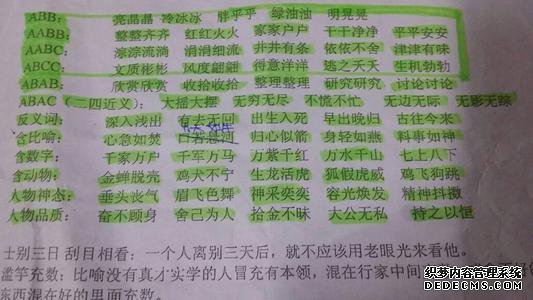 ABB: 亮晶晶 冷冰冰 胖乎乎 绿油油 明晃晃
AABB: 整整齐齐 红红火火 家家户户 干干净净 平平安安
AABC: 淙淙流淌 涓涓细流 井井有条 依依不舍 津津有味
ABCC: 文质彬彬 风度翩翩 得意洋洋 逃之夭夭 生机勃勃
ABAB: 欣赏欣赏 收拾收拾 整理整理 研究研究 讨论讨论
ABAC(二四近义): 大摇大摆 无穷无尽 不慌不忙 无边无际 无影无踪
反义词: 深入浅出 有去无回 出生入死 早出晚归 古往今来
含比喻: 心急如焚 口若悬河 归心似箭 身轻如燕 料事如神
含数字: 千家万户 千军万马 万紫千红 万水千山 七上八下
含动物: 金蝉脱壳 鸡犬不宁 生龙活虎 狐假虎威 鸡飞狗跳
人物神态: 垂头丧气 眉飞色舞 神采奕奕 容光焕发 精神抖擞
人物品质: 奋不顾身 舍己为人 拾金不昧 大公无私 持之以恒
士别三日 刮目相看:一个人离别三天后,就不应该用老眼光来看他。
滥竽充数:比喻没有真才实学的人冒充有本领,混在行家中间
东西混在好的里面充数。
织梦内容管理系统
DEDECMS.COM